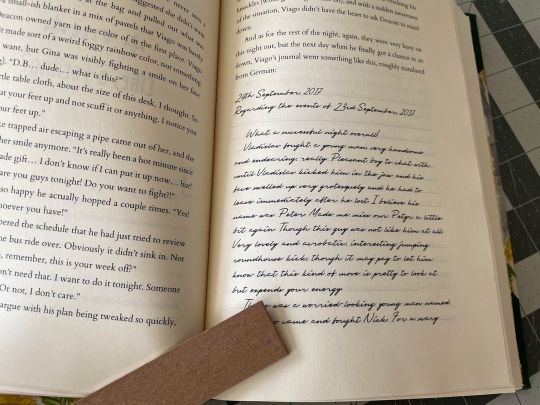 never seen, a
suggested she didn't want
at the bag and pulled out what
small-ish blanket in a mix of pastels that Viago was barely
Deacon owned yarn in the color of in the first place. Viago
it made sort of a weird foggy rainbow color, not something
want, but Gina was visibly fighting a smile on her face
g). "D.B... dude... what is this?"
tle table cloth, about the size of this desk. I thought. So
out your feet up and not scuff it or anything. I notice you
our feet up."
e trapped air escaping a pipe came out of her, and she
her smile anymore. "It's really been a hot minute since
ade gift... I don't know if I can put it up now... but!
are you guys tonight! Do you want to fight?!"
so happy he actually hopped a couple times. "Yes!
hoever you have!"
bered the schedule that he had just tried to review
he bus ride over. Obviously it didn't sink in. Not
, remember, this is your week off?"
on't need that. I want to do it tonight. Someone
Or not, I don't care."
argue with his plan being tweaked so quickly.
knuckles
of the situation, Viago didn't have the heart to ask Deacon to stand
down.
And as for the rest of the night, again, they were very busy on
this night out, but the next day when he finally got a chance to sit
down, Viago's journal went something like this, roughly translated
from German:
24th September, 2017
Regarding the events of 23rd September, 2017
What a successful night overall!
Vladislav fought a young man very handsome
and endearing really Pleasant boy to chat with
until Vladislav kicked him in the jaw and his
face swelled up very grotesquely and he had to
leave immediately after he lost I believe his
name was Peter Made me miss our Petyr a little
bit again Though this guy was not like him at all
Very lovely and acrobatic interesting jumping
roundhouse kick though it may pay to let him
know that this kind of move is pretty to look at
but expends your energy
was a worried looking young man named
came and fought Nick For a very